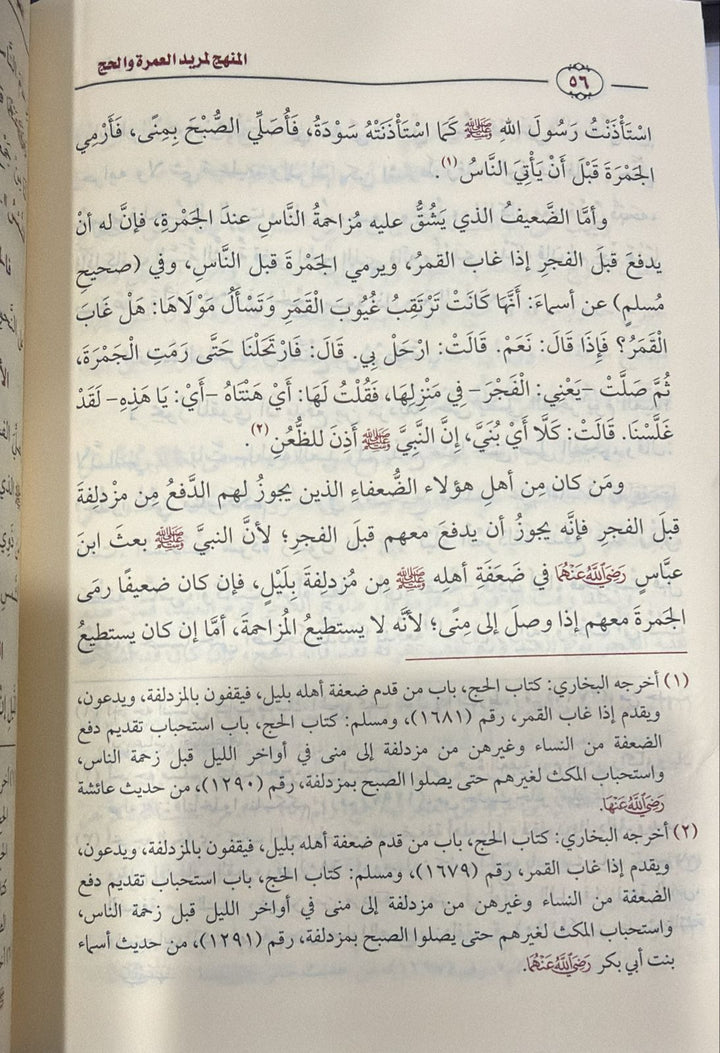 المنهج لمريد العمرة والحج
٥٦
اسْتَأْذَنْتُ رَسُولَ اللهِ ﷺ كَمَا اسْتَأْذَنَتْهُ سَوْدَةُ، فَأُصَلِّي الصُّبْحَ بِمِنًى، فَأَرْمِي
الجَمْرَةَ قَبْلَ أَنْ يَأْتِيَ النَّاسُ(١).
وأمَّا الضَّعيفُ الذي يَشُقُّ عليه مُزاحمةُ النَّاسِ عندَ الجَمْرةِ، فإنَّ له أنْ
يدفعَ قبلَ الفجرِ إذا غاب القمرُ، ويرمي الجَمْرةَ قبل النَّاسِ، وفي (صحيحِ
مُسلمٍ) عن أسماءَ: أَنَّهَا كَانَتْ تَرْتَقِبُ غُيُوبَ الْقَمَرِ وَتَسْأَلُ مَوْلَاهَا: هَلْ غَابَ
الْقَمَرُ؟ فَإِذَا قَالَ: نَعَمْ. قَالَتْ: ارْحَلْ بِي. قَالَ: فَارْتَحَلْنَا حَتَّى رَمَتِ الْجَمْرَةَ،
ثُمَّ صَلَّتْ -يَعْنِي: الْفَجْرَ- فِي مَنْزِلِهَا، فَقُلْتُ لَهَا: أَيْ هَنْتَاهُ -أَيْ: يَا هَذِهِ- لَقَدْ
غَلَّسْنَا. قَالَتْ: كَلَّا أَيْ بُنَيَّ، إِنَّ النَّبِيَّ ﷺ أَذِنَ للظُّعُنِ(٢).
ومَن كان مِن أهلِ هؤلاء الضُّعفاءِ الذين يجوزُ لهم الدَّفعُ مِن مزْدلِفةَ
قبلَ الفجرِ فإنَّه يجوزُ أن يدفعَ معهم قبلَ الفجرِ؛ لأنَّ النبيَّ ﷺ بعثَ ابنَ
عبَّاسٍ رَضِيَ اللَّهُ عَنْهُمَا في ضَعَفَةِ أهلِه ﷺ مِن مُزدلِفةَ بِلَيْلٍ، فإن كان ضعيفًا رمَى
الجَمرةَ معهم إذا وصلَ إلى مِنًى؛ لأنَّه لا يستطيعُ المُزاحمةَ، أمَّا إن كان يستطيعُ
(١) أخرجه البخاري: كتاب الحج، باب من قدم ضعفة أهله بليل، فيقفون بالمزدلفة، ويدعون،
ويقدم إذا غاب القمر، رقم (١٦٨١)، ومسلم: كتاب الحج، باب استحباب تقديم دفع
الضعفة من النساء وغيرهن من مزدلفة إلى منى في أواخر الليل قبل زحمة الناس،
واستحباب المكث لغيرهم حتى يصلوا الصبح بمزدلفة، رقم (١٢٩٠)، من حديث عائشة
رَضِيَ اللَّهُ عَنْهَا.
(٢) أخرجه البخاري: كتاب الحج، باب من قدم ضعفة أهله بليل، فيقفون بالمزدلفة، ويدعون،
ويقدم إذا غاب القمر، رقم (١٦٧٩)، ومسلم: كتاب الحج، باب استحباب تقديم دفع
الضعفة من النساء وغيرهن من مزدلفة إلى منى في أواخر الليل قبل زحمة الناس،
واستحباب المكث لغيرهم حتى يصلوا الصبح بمزدلفة، رقم (١٢٩١)، من حديث أسماء
بنت أبي بكر رَضِيَ اللَّهُ عَنْهُمَا.